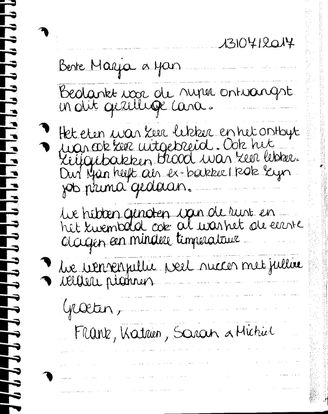 13/07/2017
Beste Marja & Han
Bedankt voor de super ontvangst
in dit gezellige Casa.
Het eten was zeer lekker en het ontbijt
was ook zeer uitgebreid. Ook het
zelfgebakken brood was zeer lekker.
Dus Han heeft als ex-bakker/kok zijn
job prima gedaan.
We hebben genoten van de rust en
het zwembad ook al was het de eerste
dagen een mindere temperatuur
We wensen jullie veel succes met jullie
verdere plannen
Groeten,
Frank, Katrien, Sarah & Michiel